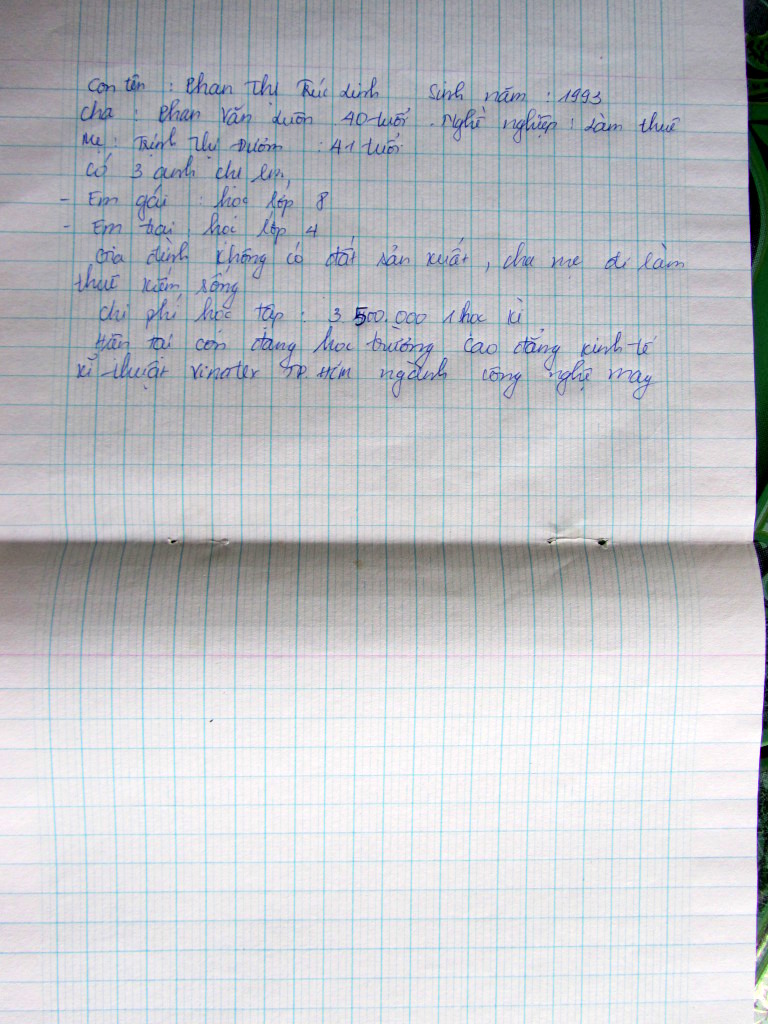 Con tên : Phan Thị Trúc Linh Sinh năm : 1993
Cha : Phan Văn Luôn 40 tuổi . Nghề nghiệp : Làm thuê
Mẹ : Trịnh Thị Đượm : 41 tuổi
Có 3 anh chị em
- Em gái : học lớp 8
- Em trai : học lớp 4
Gia đình không có đất sản xuất , cha mẹ đi làm
thuê kiếm sống
Chi phí học tập : 3.500.000 1 học kì
Hiện tại con đang học trường Cao đẳng kinh tế
kĩ thuật Vinatex TP. HCM ngành công nghệ may